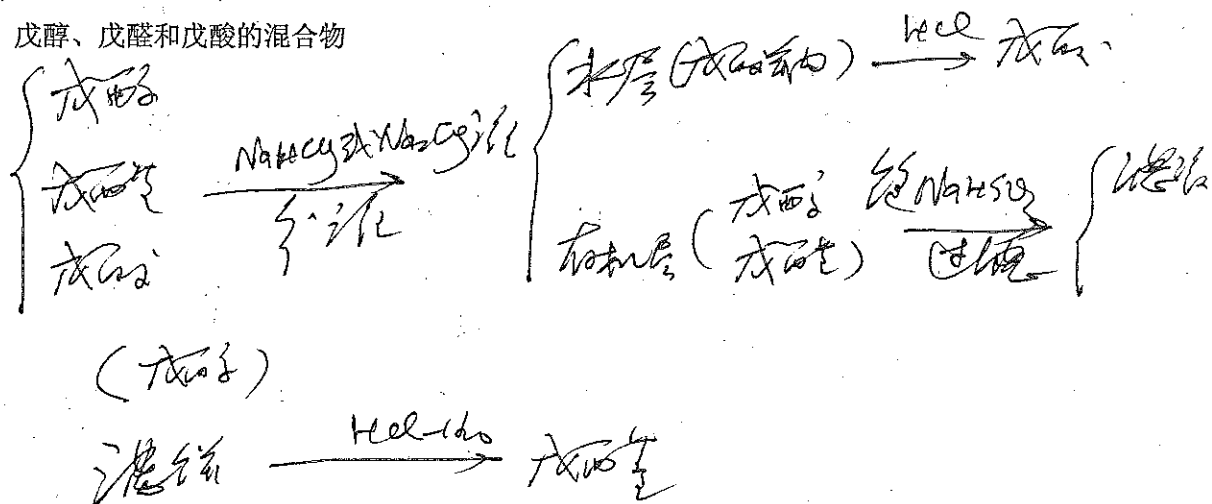 戊醇、戊醛和戊酸的混合物
戊醇
戊醛
戊酸
NaHCO3或Na2CO3液
分液
水层(戊酸钠) HCl 戊酸
有机层(戊醇 戊醛) 饱NaHSO3 过滤 滤液
(戊醇)
滤饼 HCl-H2O 戊醛